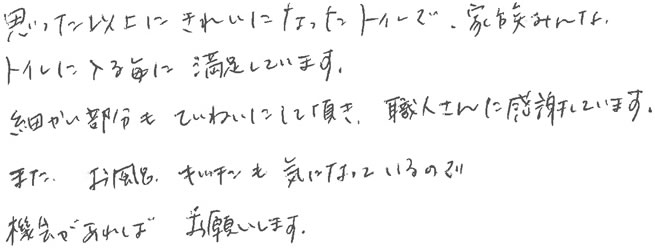 思った以上にきれいになったトイレで、家族みんな、
トイレに入る毎に満足しています。
細かい部分もていねいにして頂き、職人さんに感謝しています。
また、お風呂、キッチンも気になっているので
機会があればお願いします。